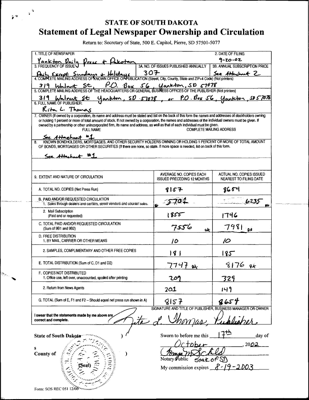 STATE OF SOUTH DAKOTA
Statement of Legal Newspaper Ownership and Circulation
Return to: Secretary of State, 500 E. Capitol, Pierre, SD 57501-5077
1. TITLE OF NEWSPAPER
Yankton Daily Press & Dakotan
2. DATE OF FILING
9-20-02
3. FREQUENCY OF ISSUE
Daily Except Sundays & Holidays
3A. NO. OF ISSUES PUBLISHED ANNUALLY
307
3B. ANNUAL SUBSCRIPTION PRICE
See Attachment 2
4. COMPLETE MAILING ADDRESS OF KNOWN OFFICE OF PUBLICATION (Street, City, County, State and ZIP+4 Code) (Not printers)
319 Walnut St P.O. Box 56 Yankton, SD 57078
5. COMPLETE MAILING ADDRESS OF THE HEADQUARTERS OR GENERAL BUSINESS OFFICES OF THE PUBLISHER (Not printer)
319 Walnut St Yankton, SD 57078, or P.O. Box 56, Yankton, SD 57078
6. FULL NAME OF PUBLISHER:
Rita L. Thomas
7. OWNER (If owned by a corporation, its name and address must be stated and also on the back of this form the names and addresses of stockholders owning
or holding 1 percent or more of total amount of stock. If not owned by a corporation, the names and addresses of the individual owners must be given. If
owned by a partnership or other unincorporated firm, its name and address, as well as that of each individual must be given.
FULL NAME
COMPLETE MAILING ADDRESS
See Attachment #1
8. KNOWN BONDHOLDERS, MORTGAGES, AND OTHER SECURITY HOLDERS OWNING OR HOLDING 1 PERCENT OR MORE OF TOTAL AMOUNT
OF BONDS, MORTGAGES OR OTHER SECURITIES (If there are none, so state. If more space is needed, list on back of this form.
See Attachment #1
9. EXTENT AND NATURE OF CIRCULATION
AVERAGE NO. COPIES EACH ISSUE PRECEDING 12 MONTHS
ACTUAL NO. COPIES ISSUED NEAREST TO FILING DATE
A. TOTAL NO. COPIES (Net Press Run)
8157
8654
B. PAID AND/OR REQUESTED CIRCULATION
1. Sales through dealers and carriers, street vendors and counter sales
5701
6235
2. Mail Subscription
(Paid and or requested)
1855
1746
C. TOTAL PAID AND/OR REQUESTED CIRCULATION
(Sum of 9B1 and 9B2)
7556
7981
D. FREE DISTRIBUTION
1. BY MAIL, CARRIER OR OTHER MEANS
10
10
2. SAMPLES, COMPLIMENTARY AND OTHER FREE COPIES
181
185
E. TOTAL DISTRIBUTION (Sum of C, D1 and D2)
7747
8176
F. COPIES NOT DISTRIBUTED
1. Office use, left over, unaccounted, spoiled after printing
209
329
2. Return from News Agents
201
149
G. TOTAL (Sum of E, F1 and F2 - Should equal net press run shown in A)
8157
8654
SIGNATURE AND TITLE OF PUBLISHER, BUSINESS MANAGER OR OWNER
I swear that the statements made by me above are
correct and complete.
Rita L. Thomas, Publisher
State of South Dakota )
County of )
(Seal)
Sworn to before me this 17th day of
October 2002
Notary Public State of SD
My commission expires 8-19-2003